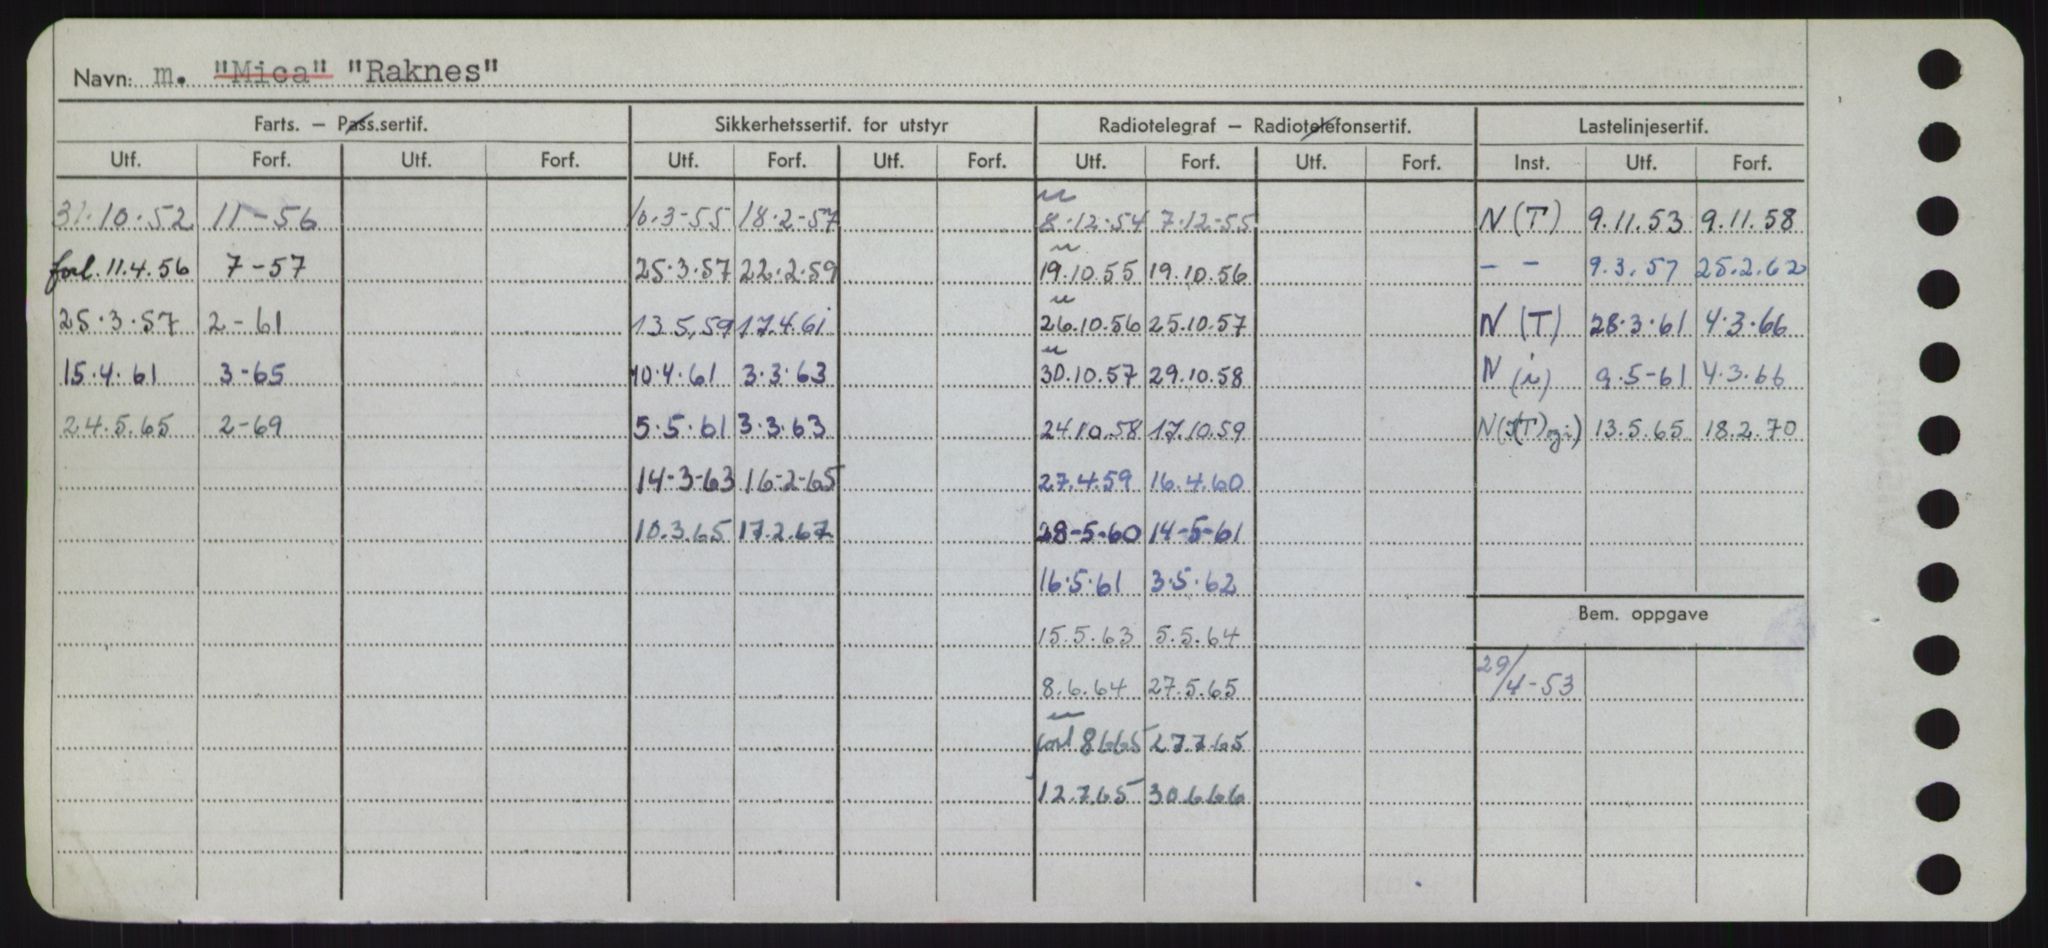 Navn: m. "Mica" "Raknes"
Farts. — Pass.sertif. Sikkerhetssertif. for utstyr Radiotelegraf — Radiotelefonsertif. Lastelinjesertif.
Utf. Forf. Utf. Forf. Utf. Forf. Utf. Forf. Utf. Forf. Utf. Forf. Inst. Utf. Forf.
31.10.52 11-56 10.3-55 18.2-57 8.12.54 7.12-55 N(T) 9.11.53 9.11.58
forl. 11.4.56 7-57 25.3.57 22.2.59 19.10.55 19.10.56 – – 9.3.57 25.2.62
25.3.57 2-61 13.5.59 17.4.61 26.10.56 25.10.57 N (T) 28.3.61 4.3.66
15.4.61 3-65 10.4.61 3.3.63 30.10.57 29.10.58 N (i) 9.5-61 4.3.66
24.5.65 2-69 5.5.61 3.3.63 24.10.58 17.10.59 13.5.65 18.2.70
14-3-63 16-2-65 27.4.59 16.4.60
10.3.65 17.2.67 28-5-60 14-5-61
16.5.61 3.5.62
Bem. oppgave
15.5.63 5.5.64
29/4-53
8.6.64 27.5.65
forl 8665 27.7.65
12.7.65 30.6.66